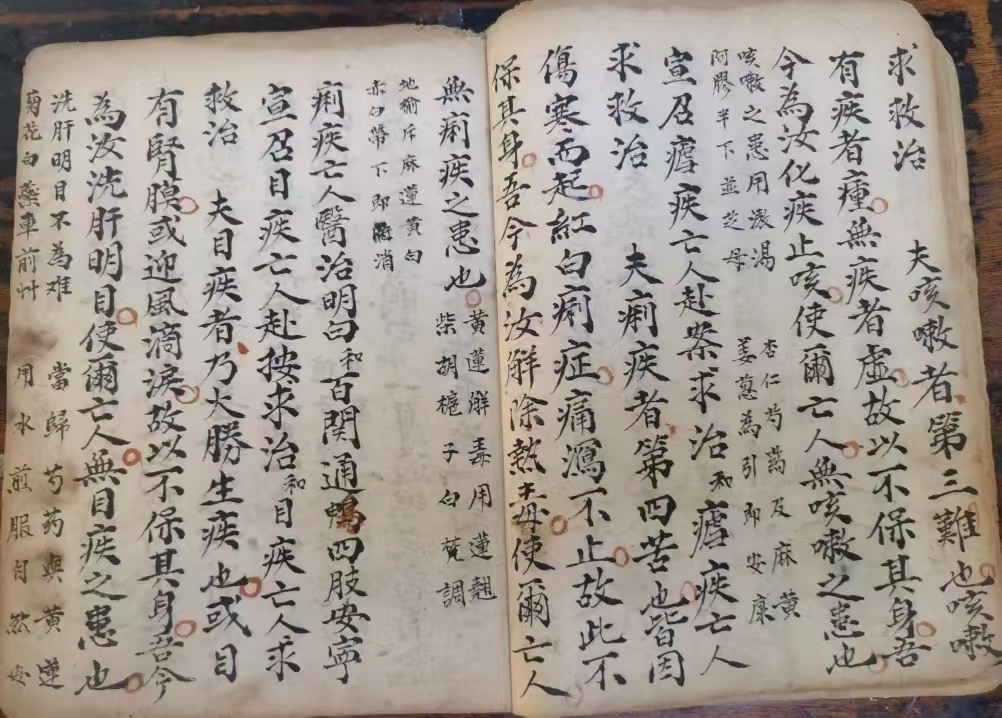 求救治　夫咳嗽者第三難也咳嗽
有疾者瘇無疾者虛故以不保其身吾
今為汝化疾止咳使爾亡人無咳嗽之患也
咳嗽之患用湯　杏仁芍葯及麻黄
阿膠半下並芝母　姜蔥為引即安康
宣召瘧疾亡人赴案求治和瘧疾亡人
求救治　夫痢疾者第四苦也皆因
傷寒而起紅白痢症痛瀉不止故此不
保其身吾今為汝解除熱毒使爾亡人
無痢疾之患也　黄蓮解毒用蓮翹
柴胡梔子白蔻調
地榆斥麻蓮黄白
赤白帶下即消
痢疾亡人醫治明白和百関通暢四肢安寧
宣召目疾亡人赴按求治和目疾亡人求
救治　夫目疾者乃火勝生疾也或目
有腎膜或迎風滴淚故以不保其身吾今
為汝洗肝明目使爾亡人無目疾之患也
洗肝明目不為难　當歸芍药與黄蓮
菊花白車前艸　用水煎服自然安